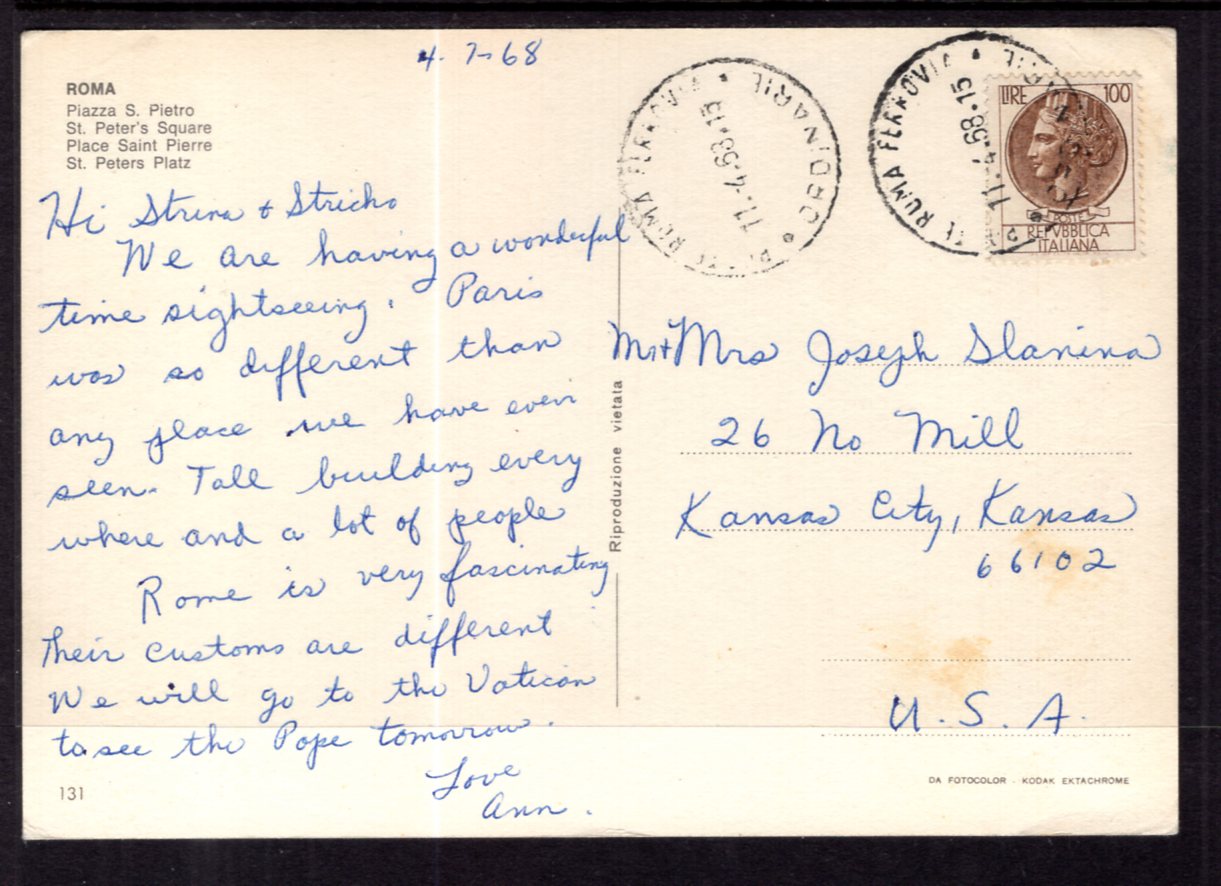 4-7-68
ROMA
Piazza S. Pietro
St. Peter's Square
Place Saint Pierre
St. Peters Platz
Hi Strina + Stricho
We are having a wonderful
time sightseeing. Paris
was so different than
any place we have even
seen. Tall building every
where and a lot of people
Rome is very fascinating
Their customs are different
We will go to the Vatican
to see the Pope tomorrow.
Love
Ann.
131
Riproduzione vietata
ORDINARIE
ROMA FERROVIA
11.4.68.15
ROMA FERROVIA
11.4.68.15
LIRE 100
POSTE
REPVBBLICA
ITALIANA
Mr + Mrs Joseph Slanina
26 No Mill
Kansas City, Kansas
66102
U.S.A.
DA FOTOCOLOR - KODAK EKTACHROME